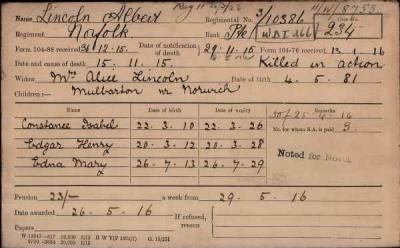 Name Lincoln Albert Regimental No. 3/10386
Regiment Norfolk Rank Pte WDI 266 Case No. 234
Form 104-88 received 12.15. Date of notification of death 29.11.15 Form 104-76 received 13.1.16
Date and cause of death 15.11.15. Killed in action
Widow Mrs Alice Lincoln Date of birth 4.5.81
Children:— Mulbarton nr Norwich
Name Date of birth Date of expiry
Constance Isabel 22.3.10 22.3.26
Edgar Henry 20.3.12 20.3.28
Edna Mary 26.7.13 26.7.29
No. for whom S.A. is paid 3
Noted for
Pension 23/- a week from 29.5.16
Date awarded 26.5.16 If refused, reason
Papers